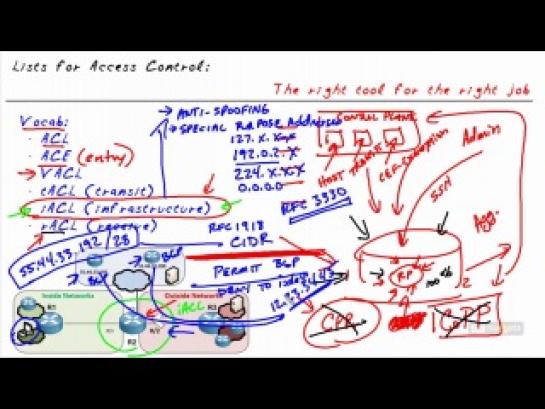 Lists for Access Control:
The right tool for the right job
Vocab:
• ACL
• ACE (entry)
• VACL
• tACL (transit)
• iACL (infrastructure)
• rACL (receive)
→ ANTI-SPOOFING
→ SPECIAL PURPOSE Addresses
127.X.X.X
192.0.2.X
224.X.X.X
0.0.0.0
RFC 3330
RFC 1918
CIDR
PERMIT BGP
DENY TO
CONTROL PLANE
HOST TRANSIT
CEF-EXCEPTION
Admin
SSH
Agg.
RP
CPPr
CoPP
55.44.33.192/28
BGP
BGP
Inside Networks
Outside Networks
iACL
R1
R2
R3